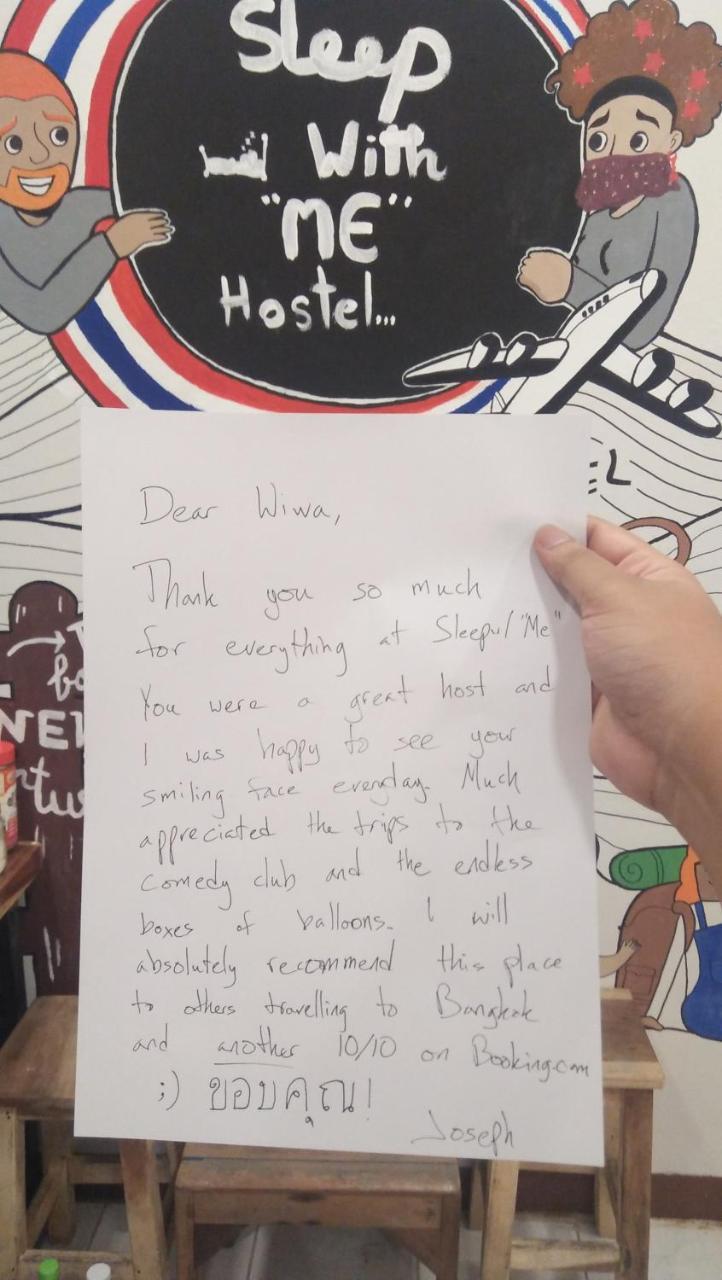 Sleep
With
"ME"
Hostel...
EL
Dear Wiwa,
Thank you so much
for everything at Sleepw/"Me"
You were a great host and
I was happy to see your
smiling face everyday. Much
appreciated the trips to the
comedy club and the endless
boxes of balloons. I will
absolutely recommend this place
to others travelling to Bangkok
and another 10/10 on Booking.com
;) ขอบคุณ!
Joseph